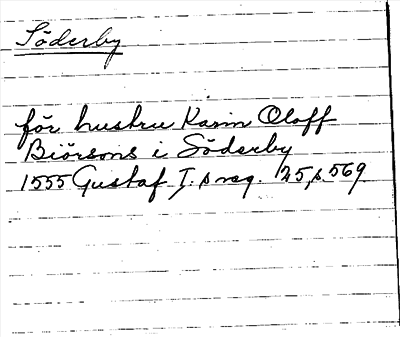 Söderby
för hustru Karin Oloff
Biörsons i Söderby
1555 Gustaf I:s reg. 25, s. 569